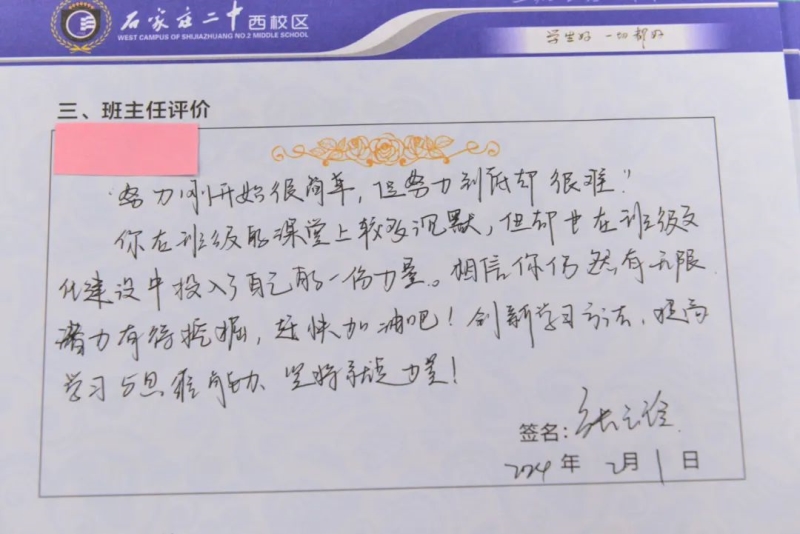 石家庄二中西校区
WEST CAMPUS OF SHIJIAZHUANG NO.2 MIDDLE SCHOOL
学生好 一切都好
三、班主任评价
“努力刚开始很简单，但努力到底却很难。”
你在班级的课堂上较为沉默，但却也在班级文
化建设中投入了自己的一份力量。相信你仍然有无限
潜力有待挖掘，赶快加油吧！创新学习方法，提高
学习与思维能力、坚持就是力量！
签名：张
2024年 2月1日